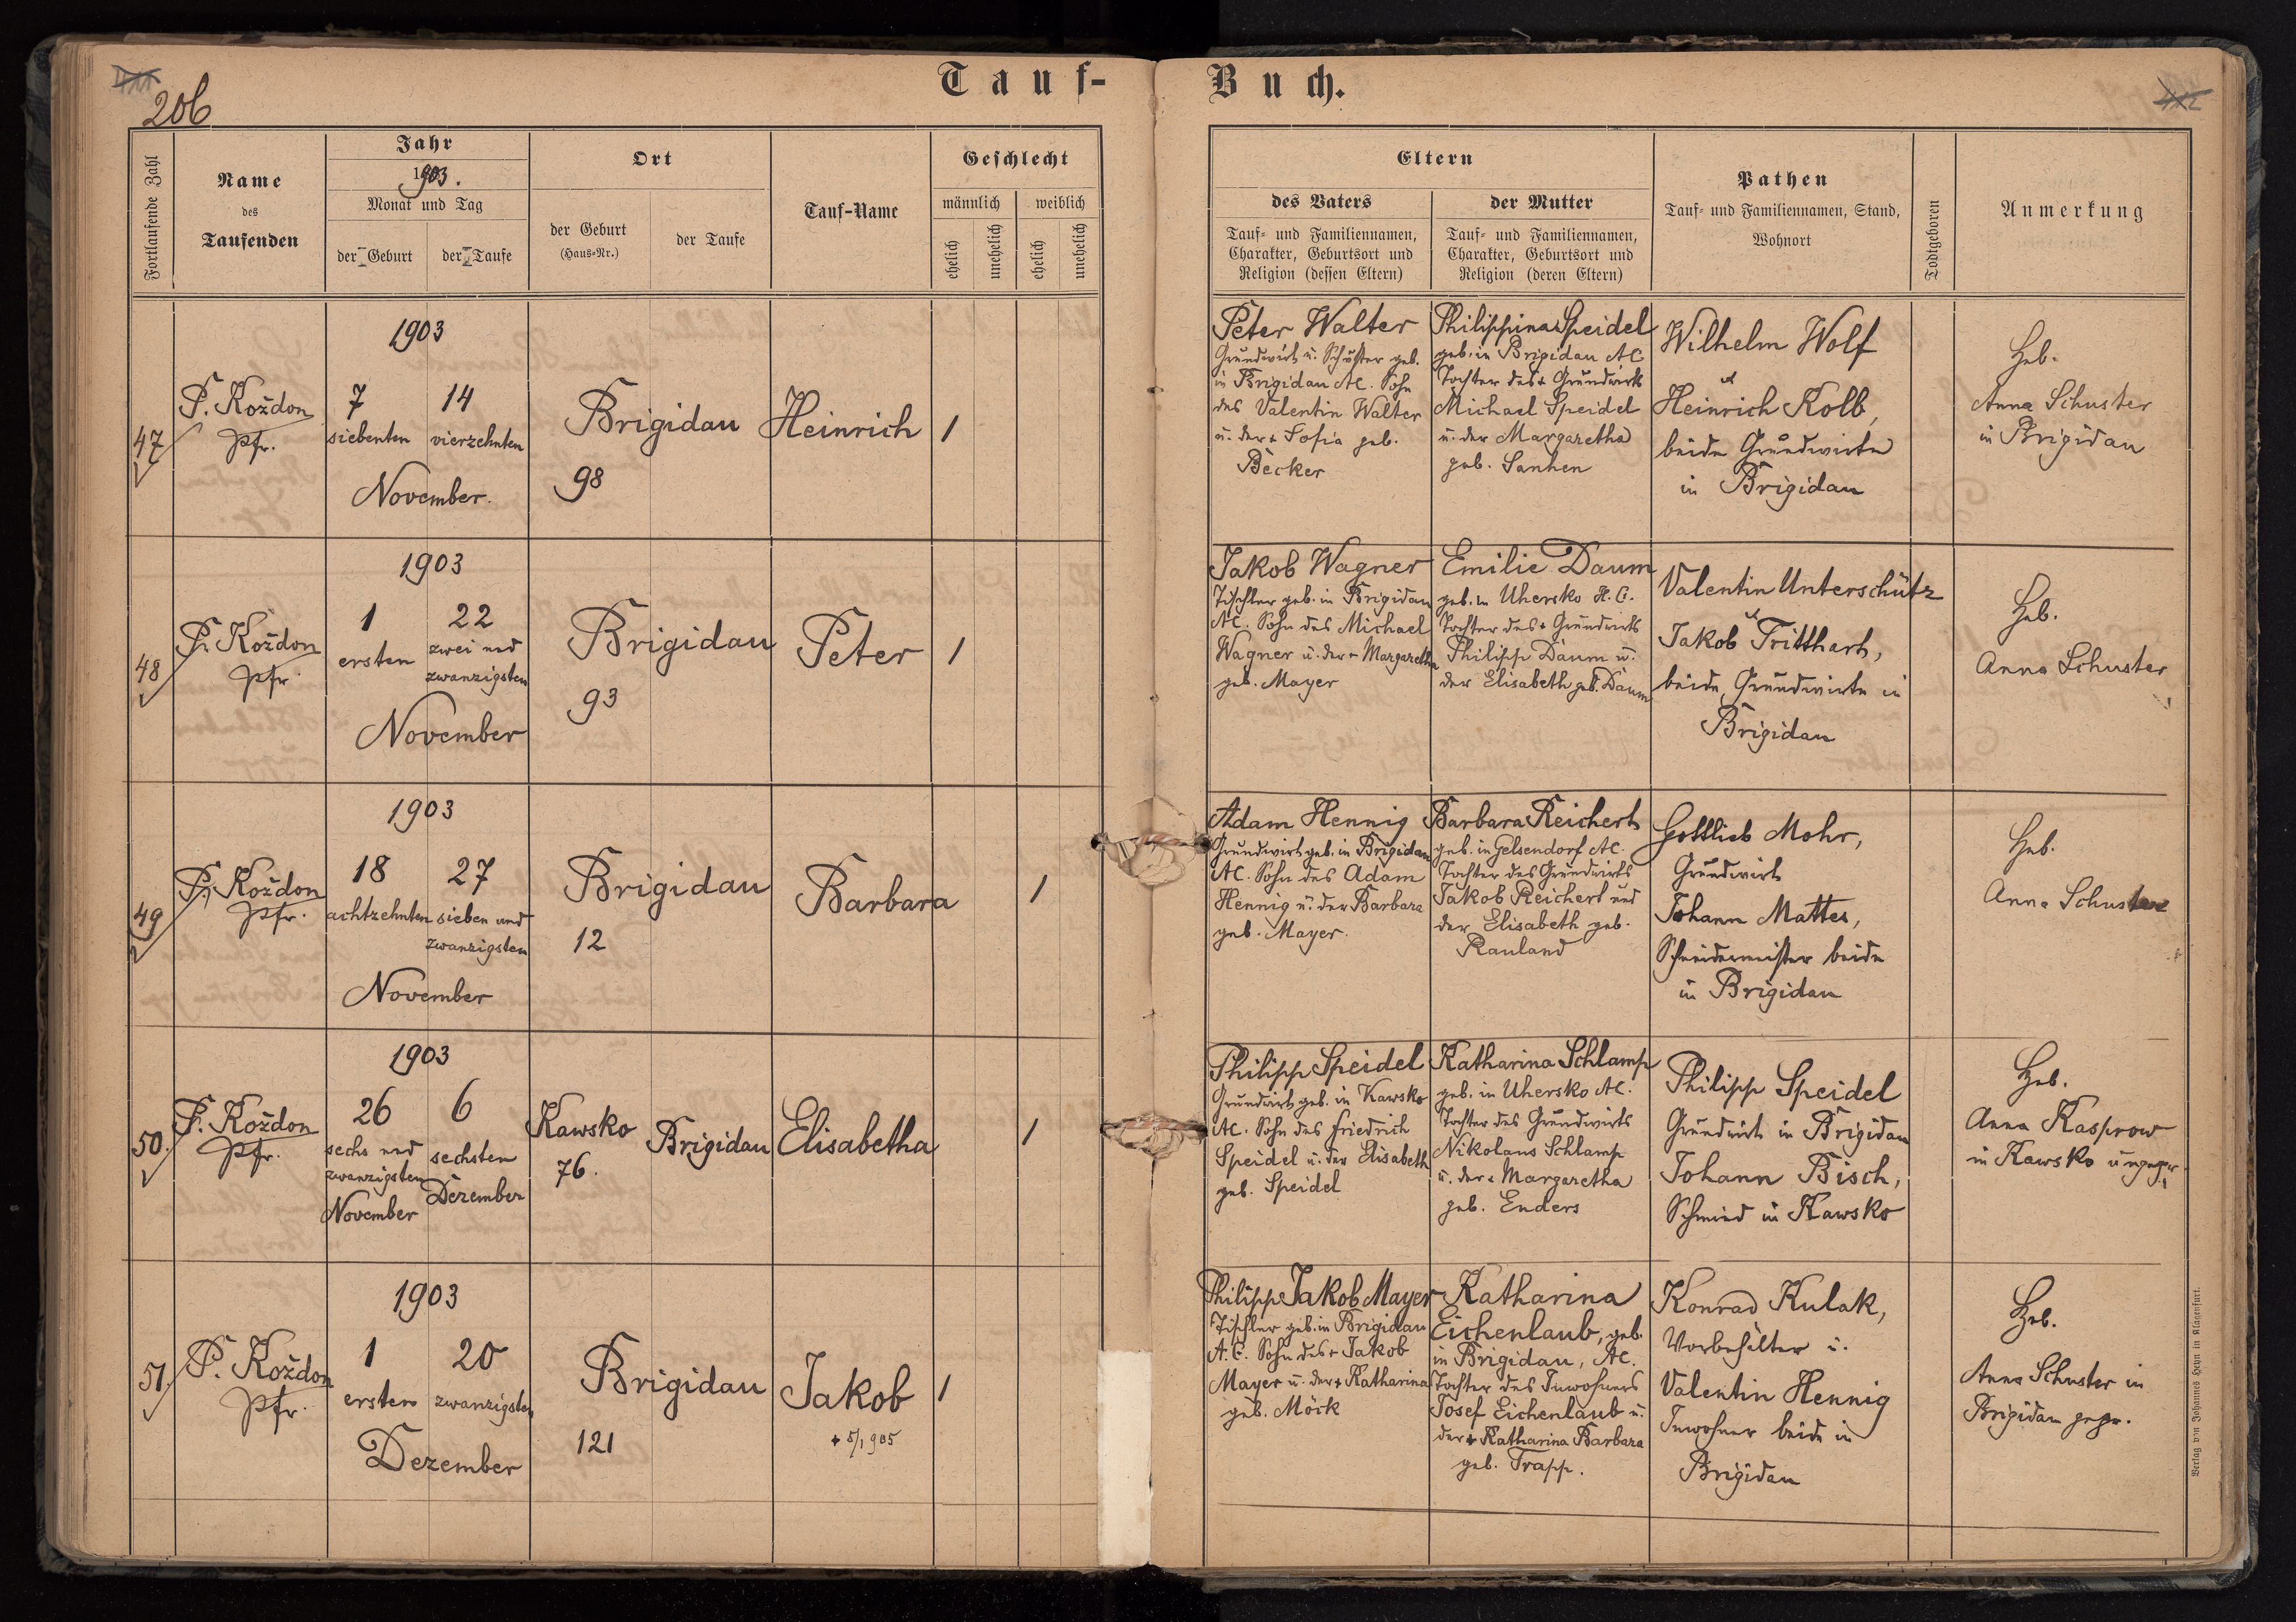 206
Tauf-
Buch.
Fortlaufende Zahl
Name
des
Taufenden
Jahr
1903.
Monat und Tag
der Geburt
der Taufe
Ort
der Geburt
(Haus-Nr.)
der Taufe
Tauf-Name
Geschlecht
männlich
weiblich
ehelich
unehelich
ehelich
unehelich
Eltern
des Vaters
Tauf- und Familiennamen,
Charakter, Geburtsort und
Religion (dessen Eltern)
der Mutter
Tauf- und Familiennamen,
Charakter, Geburtsort und
Religion (deren Eltern)
Pathen
Tauf- und Familiennamen, Stand,
Wohnort
Todtgeboren
Anmerkung
47
P. Koždon
Pfr.
1903
7
siebenten
14
vierzehnten
November.
Brigidau
98
Heinrich
1
Peter Walter
Grundwirt u. Schuster geb.
in Brigidau AC. Sohn
des Valentin Walter
u. der + Sofia geb.
Becker
Philippina Speidel
geb. in Brigidau AC
Tochter des + Grundwirts
Michael Speidel
u. der Margaretha
geb. Sanhen
Wilhelm Wolf
u
Heinrich Kolb,
beide Grundwirte
in Brigidau
Heb.
Anna Schuster
in Brigidau
48
P. Koždon
Pfr.
1903
1
ersten
22
zwei und
zwanzigsten
November
Brigidau
93
Peter
1
Jakob Wagner
Tischler geb. in Brigidau
AC. Sohn des Michael
Wagner u. der + Margaretha
geb. Mayer
Emilie Daum
geb. in Uhersko H.C.
Tochter des + Grundwirts
Philipp Daum u.
der Elisabeth geb. Daum
Valentin Unterschütz
u
Jakob Tritthart,
beide Grundwirte in
Brigidau
Heb.
Anna Schuster
49
P. Koždon
Pfr.
1903
18
achtzehnten
27
sieben und
zwanzigsten
November
Brigidau
12
Barbara
1
Adam Hennig
Grundwirt geb. in Brigidau
AC. Sohn des Adam
Hennig u. der Barbara
geb. Mayer.
Barbara Reichert
geb. in Gelsendorf AC.
Tochter des Grundwirts
Jakob Reichert und
der Elisabeth geb.
Rauland
Gottlieb Mohr,
Grundwirt
Johann Mattes,
Schneidermeister beide
in Brigidau
Heb.
Anna Schuster
50.
P. Koždon
Pfr.
1903
26
sechs und
zwanzigsten
November
6
sechsten
Dezember
Kawsko
76.
Brigidau
Elisabetha
1
Philipp Speidel
Grundwirt geb. in Kawsko
AC. Sohn des Friedrich
Speidel u. der Elisabeth
geb. Speidel
Katharina Schlamp
geb. in Uhersko AC.
Tochter des Grundwirts
Nikolaus Schlamp
u. der + Margaretha
geb. Enders
Philipp Speidel
Grundwirt in Brigidau
Johann Bisch,
Schmied in Kawsko
Heb.
Anna Kasprow
in Kawsko ungepr.
51.
P. Koždon
Pfr.
1903
1
ersten
20
zwanzigsten
Dezember
Brigidau
121
Jakob
+ 5/1 905
1
Philipp Jakob Mayer
Tischler geb. in Brigidau
A.C. Sohn des + Jakob
Mayer u. der + Katharina
geb. Möck
Katharina
Eichenlaub, geb.
in Brigidau, AC.
Tochter des Inwohners
Josef Eichenlaub u.
der + Katharina Barbara
geb. Trapp.
Konrad Kulak,
Vorbehälter u.
Valentin Hennig
Inwohner beide in
Brigidau
Heb.
Anna Schuster in
Brigidau gepr.
Verlag von Johannes Heyn in Klagenfurt.